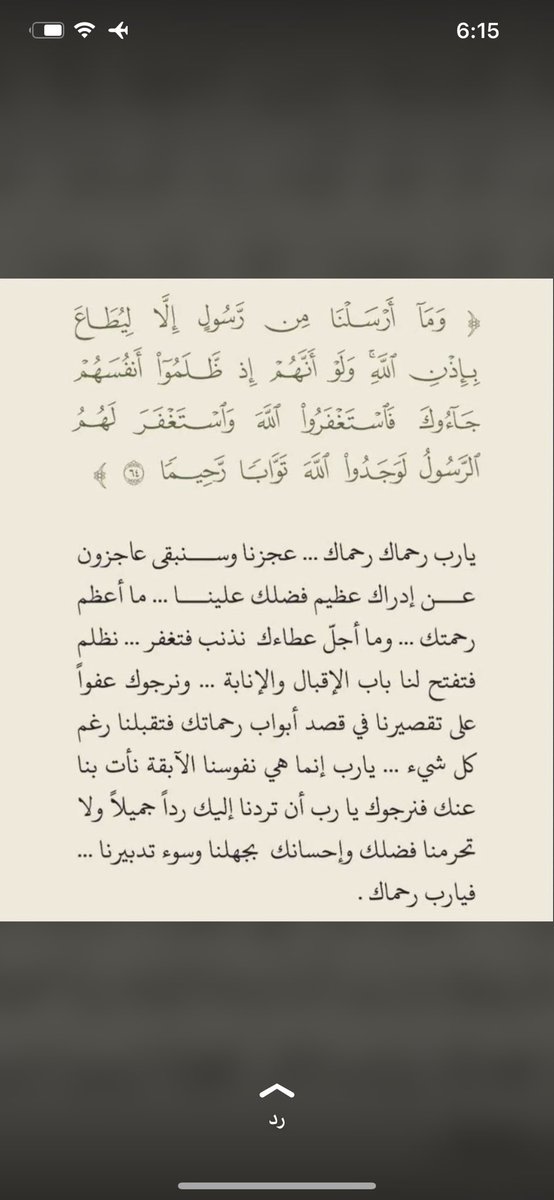 6:15
﴿ وَمَآ أَرۡسَلۡنَا مِن رَّسُولٍ إِلَّا لِيُطَاعَ
بِإِذۡنِ ٱللَّهِۚ وَلَوۡ أَنَّهُمۡ إِذ ظَّلَمُوٓاْ أَنفُسَهُمۡ
جَآءُوكَ فَٱسۡتَغۡفَرُواْ ٱللَّهَ وَٱسۡتَغۡفَرَ لَهُمُ
ٱلرَّسُولُ لَوَجَدُواْ ٱللَّهَ تَوَّابٗا رَّحِيمٗا ٦٤ ﴾
يارب رحماك رحماك ... عجزنا وسنبقى عاجزون
عن إدراك عظيم فضلك علينا ... ما أعظم
رحمتك ... وما أجلّ عطاءك نذنب فتغفر ... نظلم
فتفتح لنا باب الإقبال والإنابة ... ونرجوك عفواً
على تقصيرنا في قصد أبواب رحماتك فتقبلنا رغم
كل شيء ... يارب إنما هي نفوسنا الآبقة نأت بنا
عنك فنرجوك يا رب أن تردنا إليك رداً جميلاً ولا
تحرمنا فضلك وإحسانك بجهلنا وسوء تدبيرنا ...
فيارب رحماك .
رد